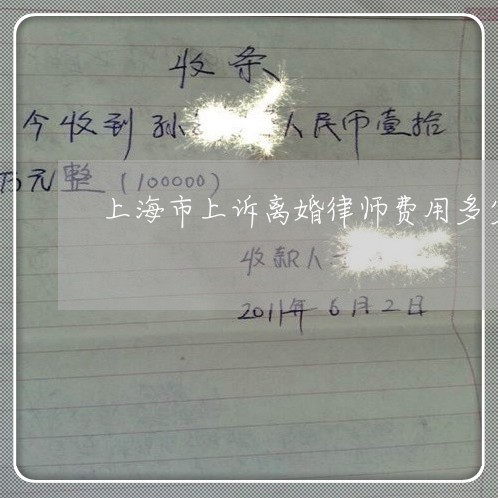 收条
今收到孙 人民币壹拾
万元整(100000)
上海市上诉离婚律师费用多
收款人
2011年6月2日